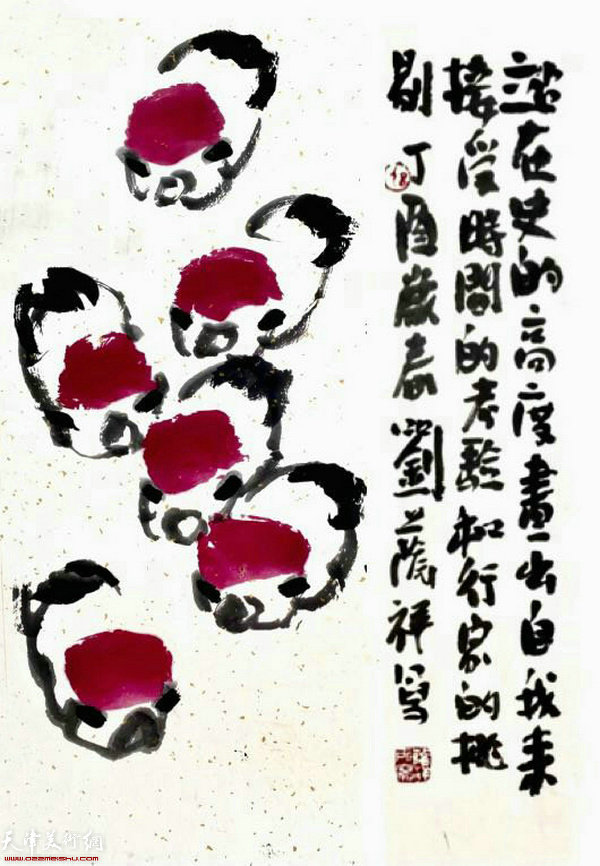 站在史的高度畫出自我来
接受時間的考驗和行家的挑
剔 丁酉歲春 劉蔭祥写
天津美术网
www.022meishu.com